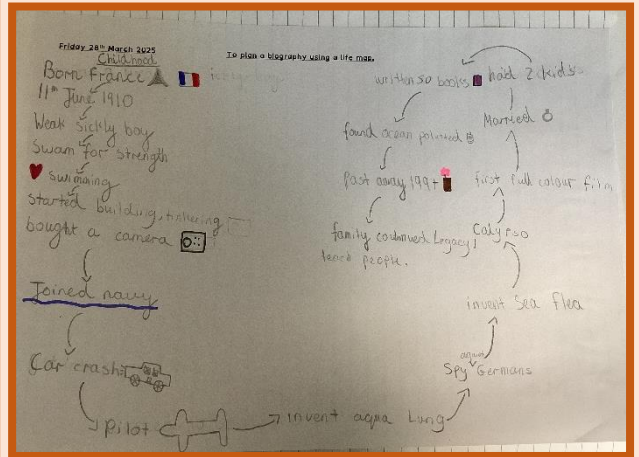 Friday 28th March 2025
To plan a biography using a life map.
Childhood
Born France
11th June 1910
Weak sickly boy
Swam for strength
swimming
started building, tinkering
bought a camera
Joined navy
Car crash
Pilot
invent aqua Lung
Spy against Germans
invent Sea Flea
Calypso
first full colour film
Married
had 2 kids
written 50 books
found ocean polluted
Past away 199
family continued Legacy,
people.